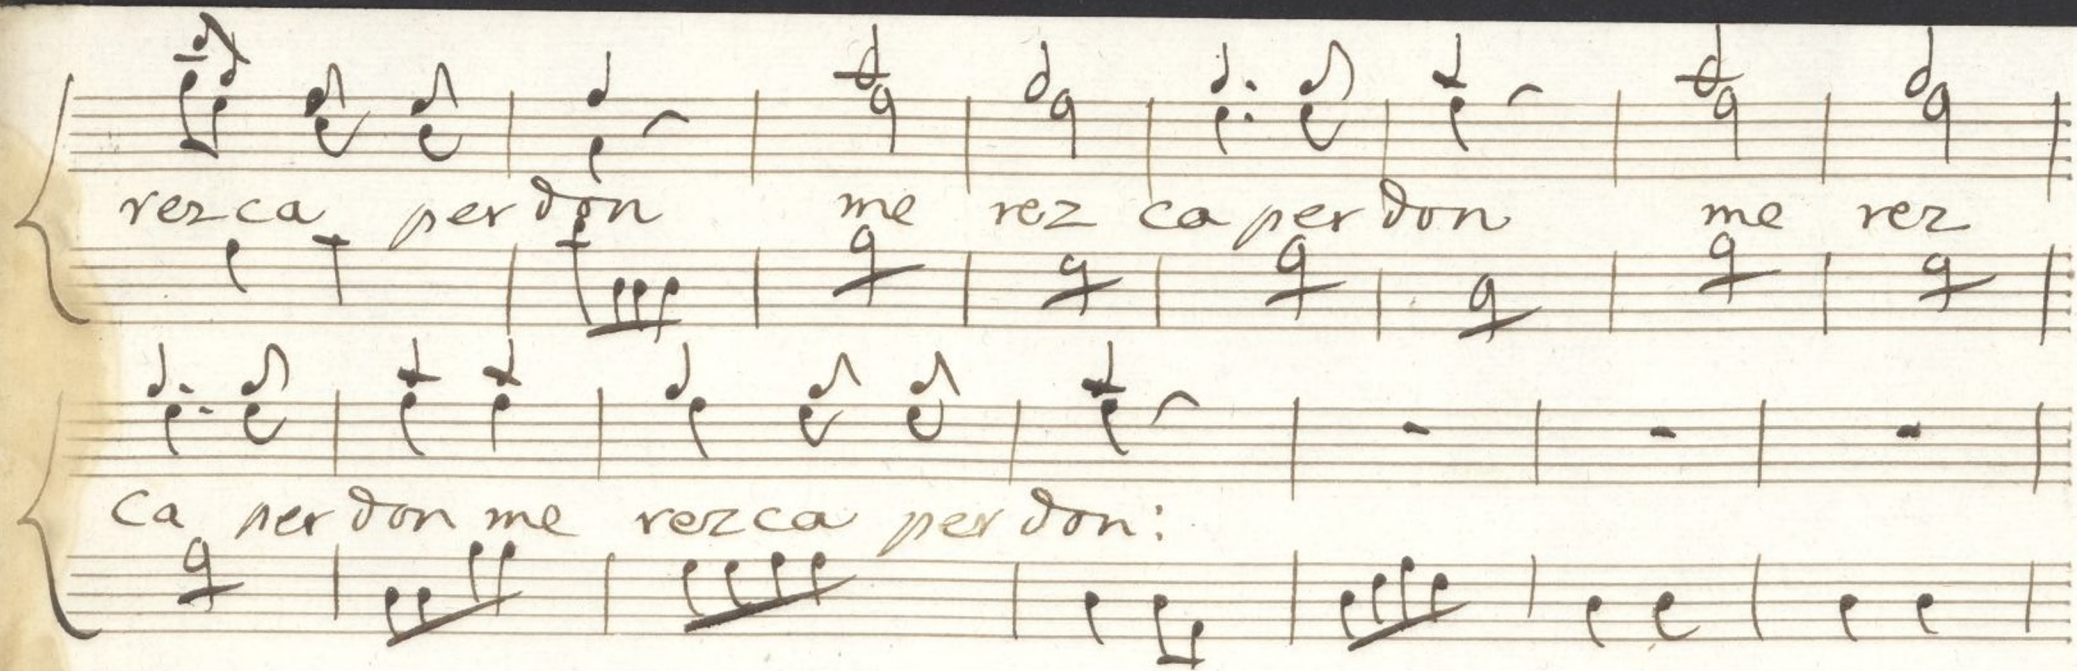 rezca perdon me rez ca perdon me rez
ca perdon me rezca perdon: